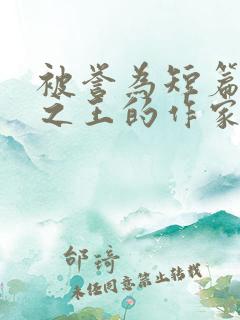 被誉为短篇
之王的作家
邰琦
未经同意禁止转载